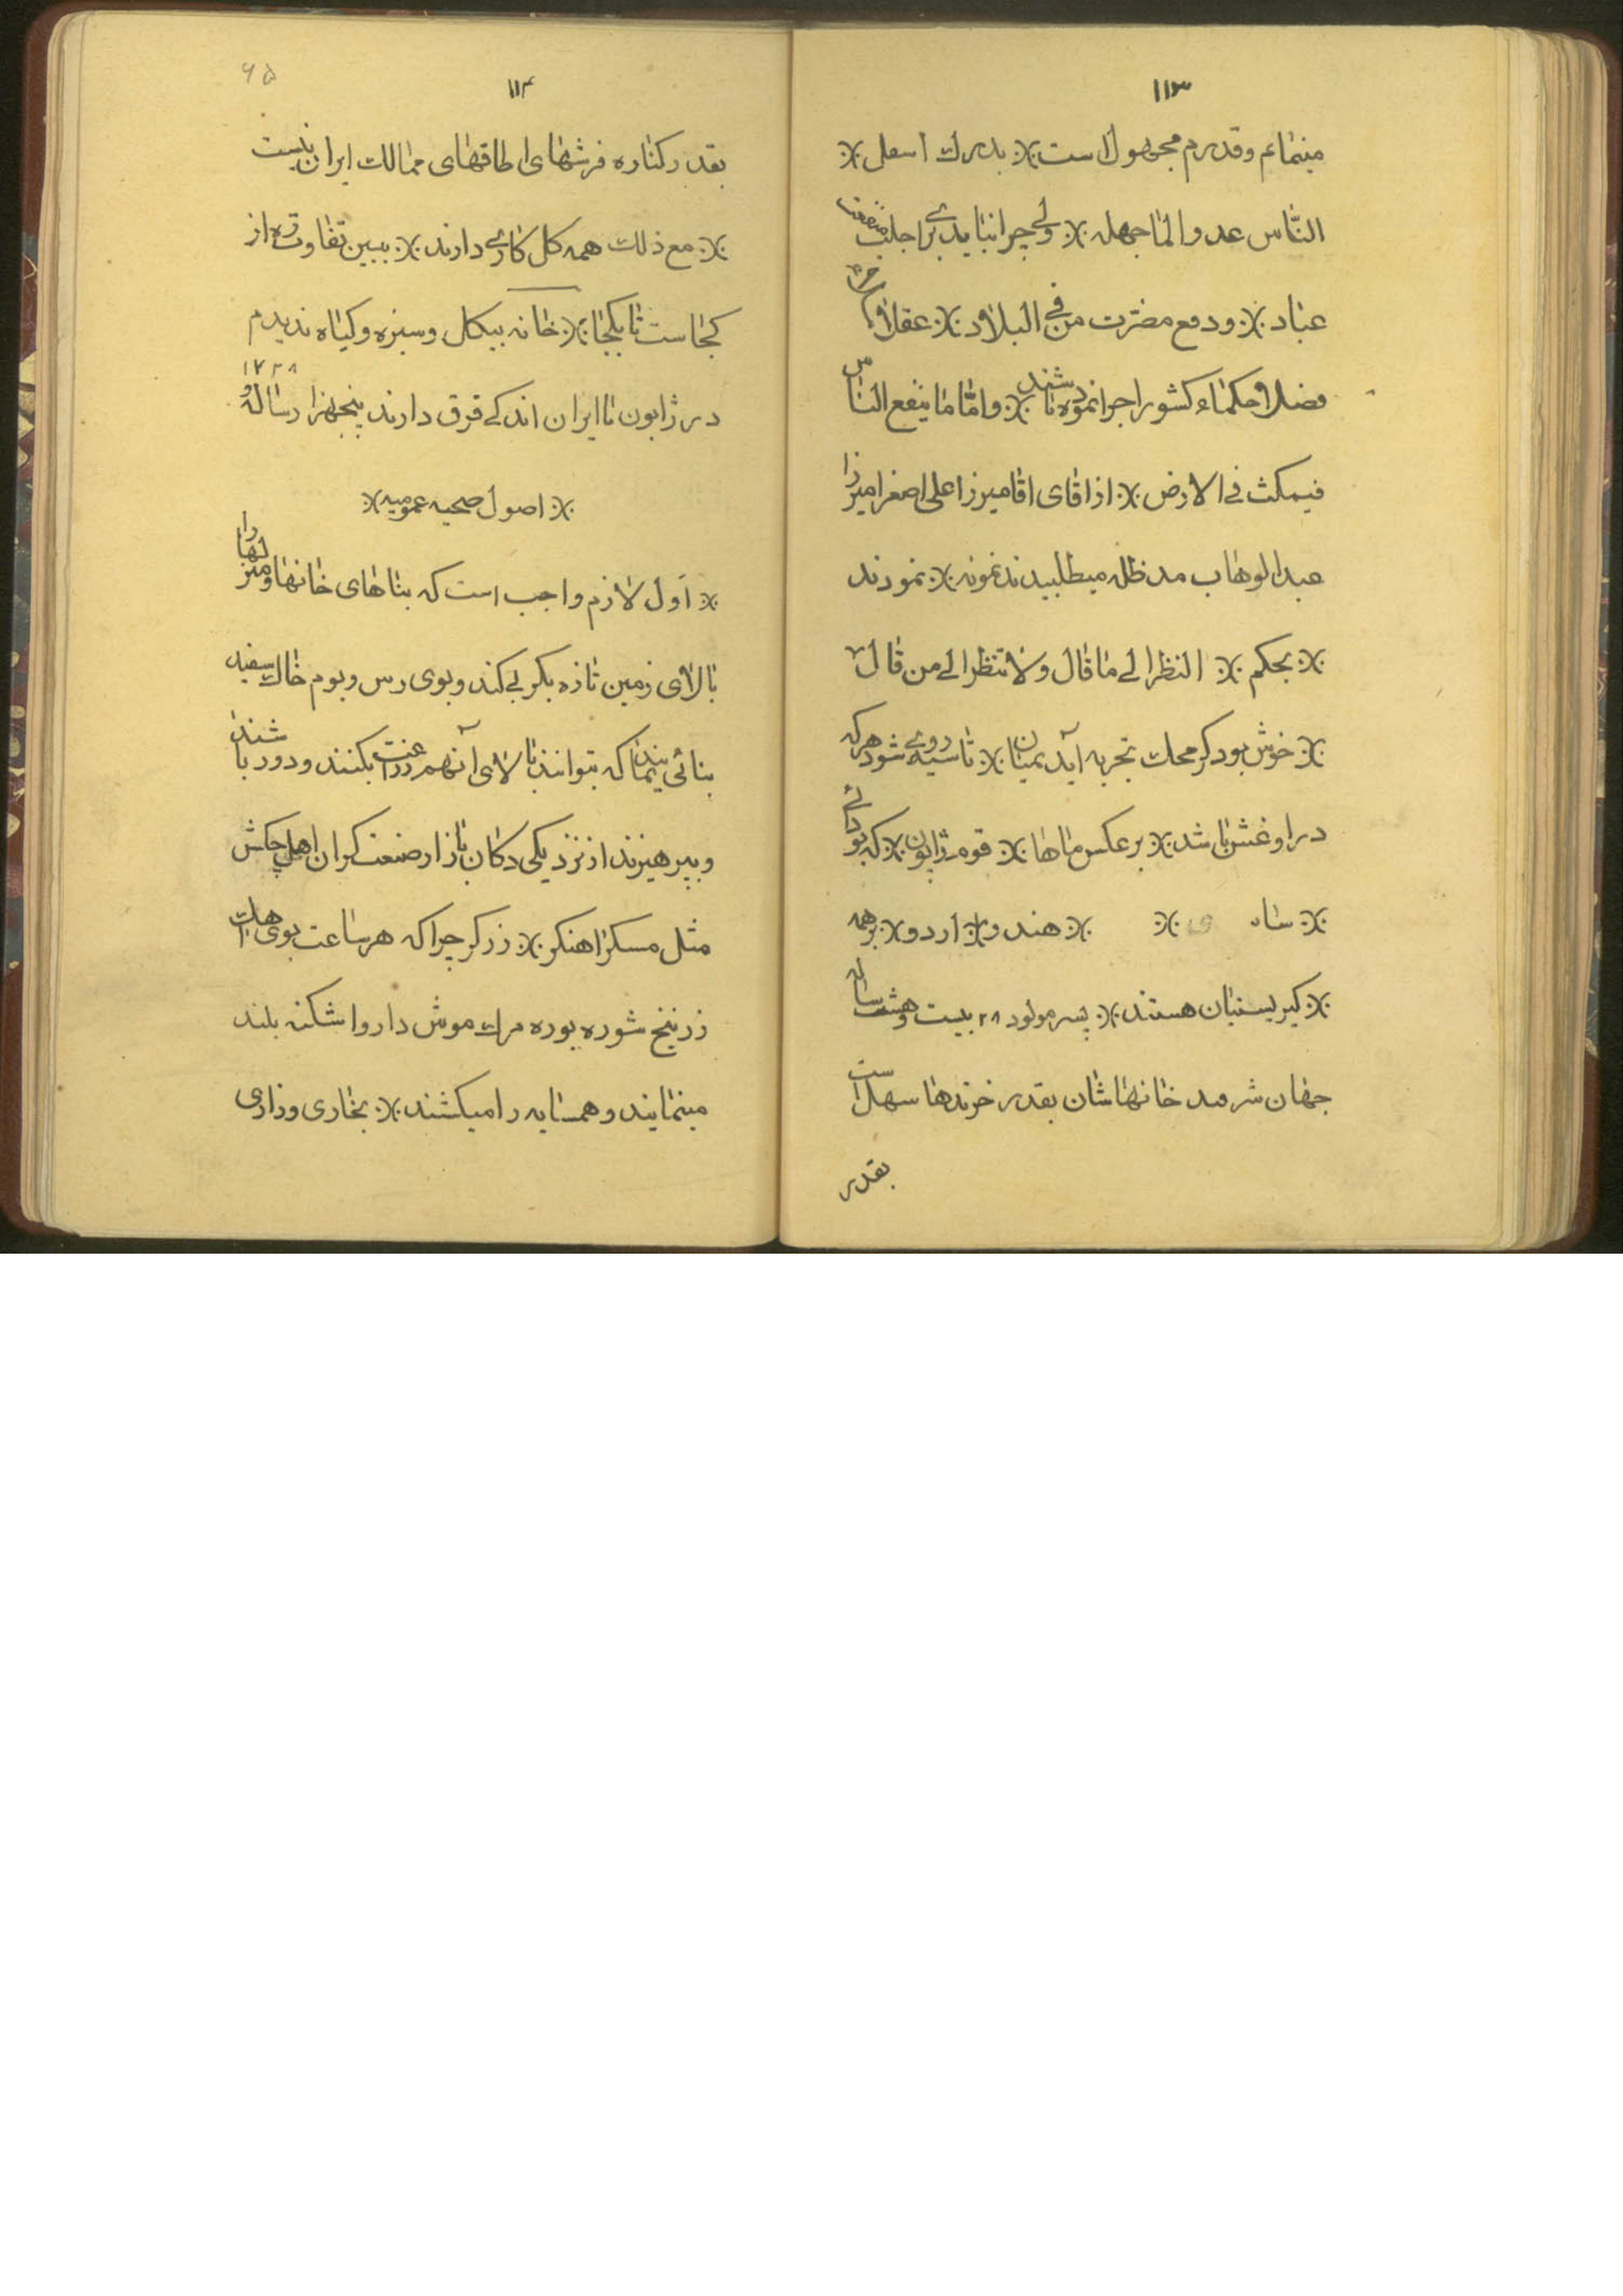 ۱۱۳
مینمایم و قدرم مجهول است ※ بدرک اسفل ※
النّاس عدو والما جهله ※ ولی چرا نباید برای جلب منفعت
عباد ※ و دفع مضرّت من فی البلاد ※ عقلا و
فضلا و حکماء کشور اجرا نموده باشند ※ و امّا ما ینفع النّاس
فیمکث فی الارض ※ از اقای اقا میرزا علی اصغر امیرزا
عبدالوهاب مد ظله میطلبیدند نمونه ※ نمودند
※ بحکم ※ النظر الی ما قال و لا تنظر الی من قال
※ خوش بود کر محک تجربه آید بمیان ※ تا سیه روی شود هرکه
در او غش باشد ※ بر عکس ماها ※ قوم ژاپون ※ که بودائی
※ هندو ※ اردو ※ برهمه
※ کیریستیان هستند ※ پسر مولود ۲۸ بیست و هشت ساله
جهان شرمد خانهاشان بقدر خزندها سهل است
بقدر
۶۵
۱۱۴
بقدر کناره فرشهای اطاقهای ممالک ایران نیست
※ مع ذلک همه کل کاری دارند ※ ببین تفاوت ره از
کجاست تا بکجا ※ خانه بیکل و سبزه و کیاه ندیدم
۱۷۲۸
در ژاپون تا ایران اندکی فرق دارند پنجهزار و رساله
※ اصول صحیه عمومیه ※
※ اوّل لازم واجب است که بناهای خانها و منزلها را
بالای زمین تازه بکر بی کند و بوی رس و بوم خاک سفید
بنائی بنمایند که بتوانند بالای آنهم زراعت بکنند و دور باشند
و بپرهیزند از نزدیکی دکان بازار صنعت کران اهل چکش
مثل مسکر اهنکر ※ زرکر چرا که هر ساعت بوی اهک
زرنیخ شوره بوره مرک موش داروا شکنه بلند
مینمایند و همسایه را میکشند ※ بخاری و زاری